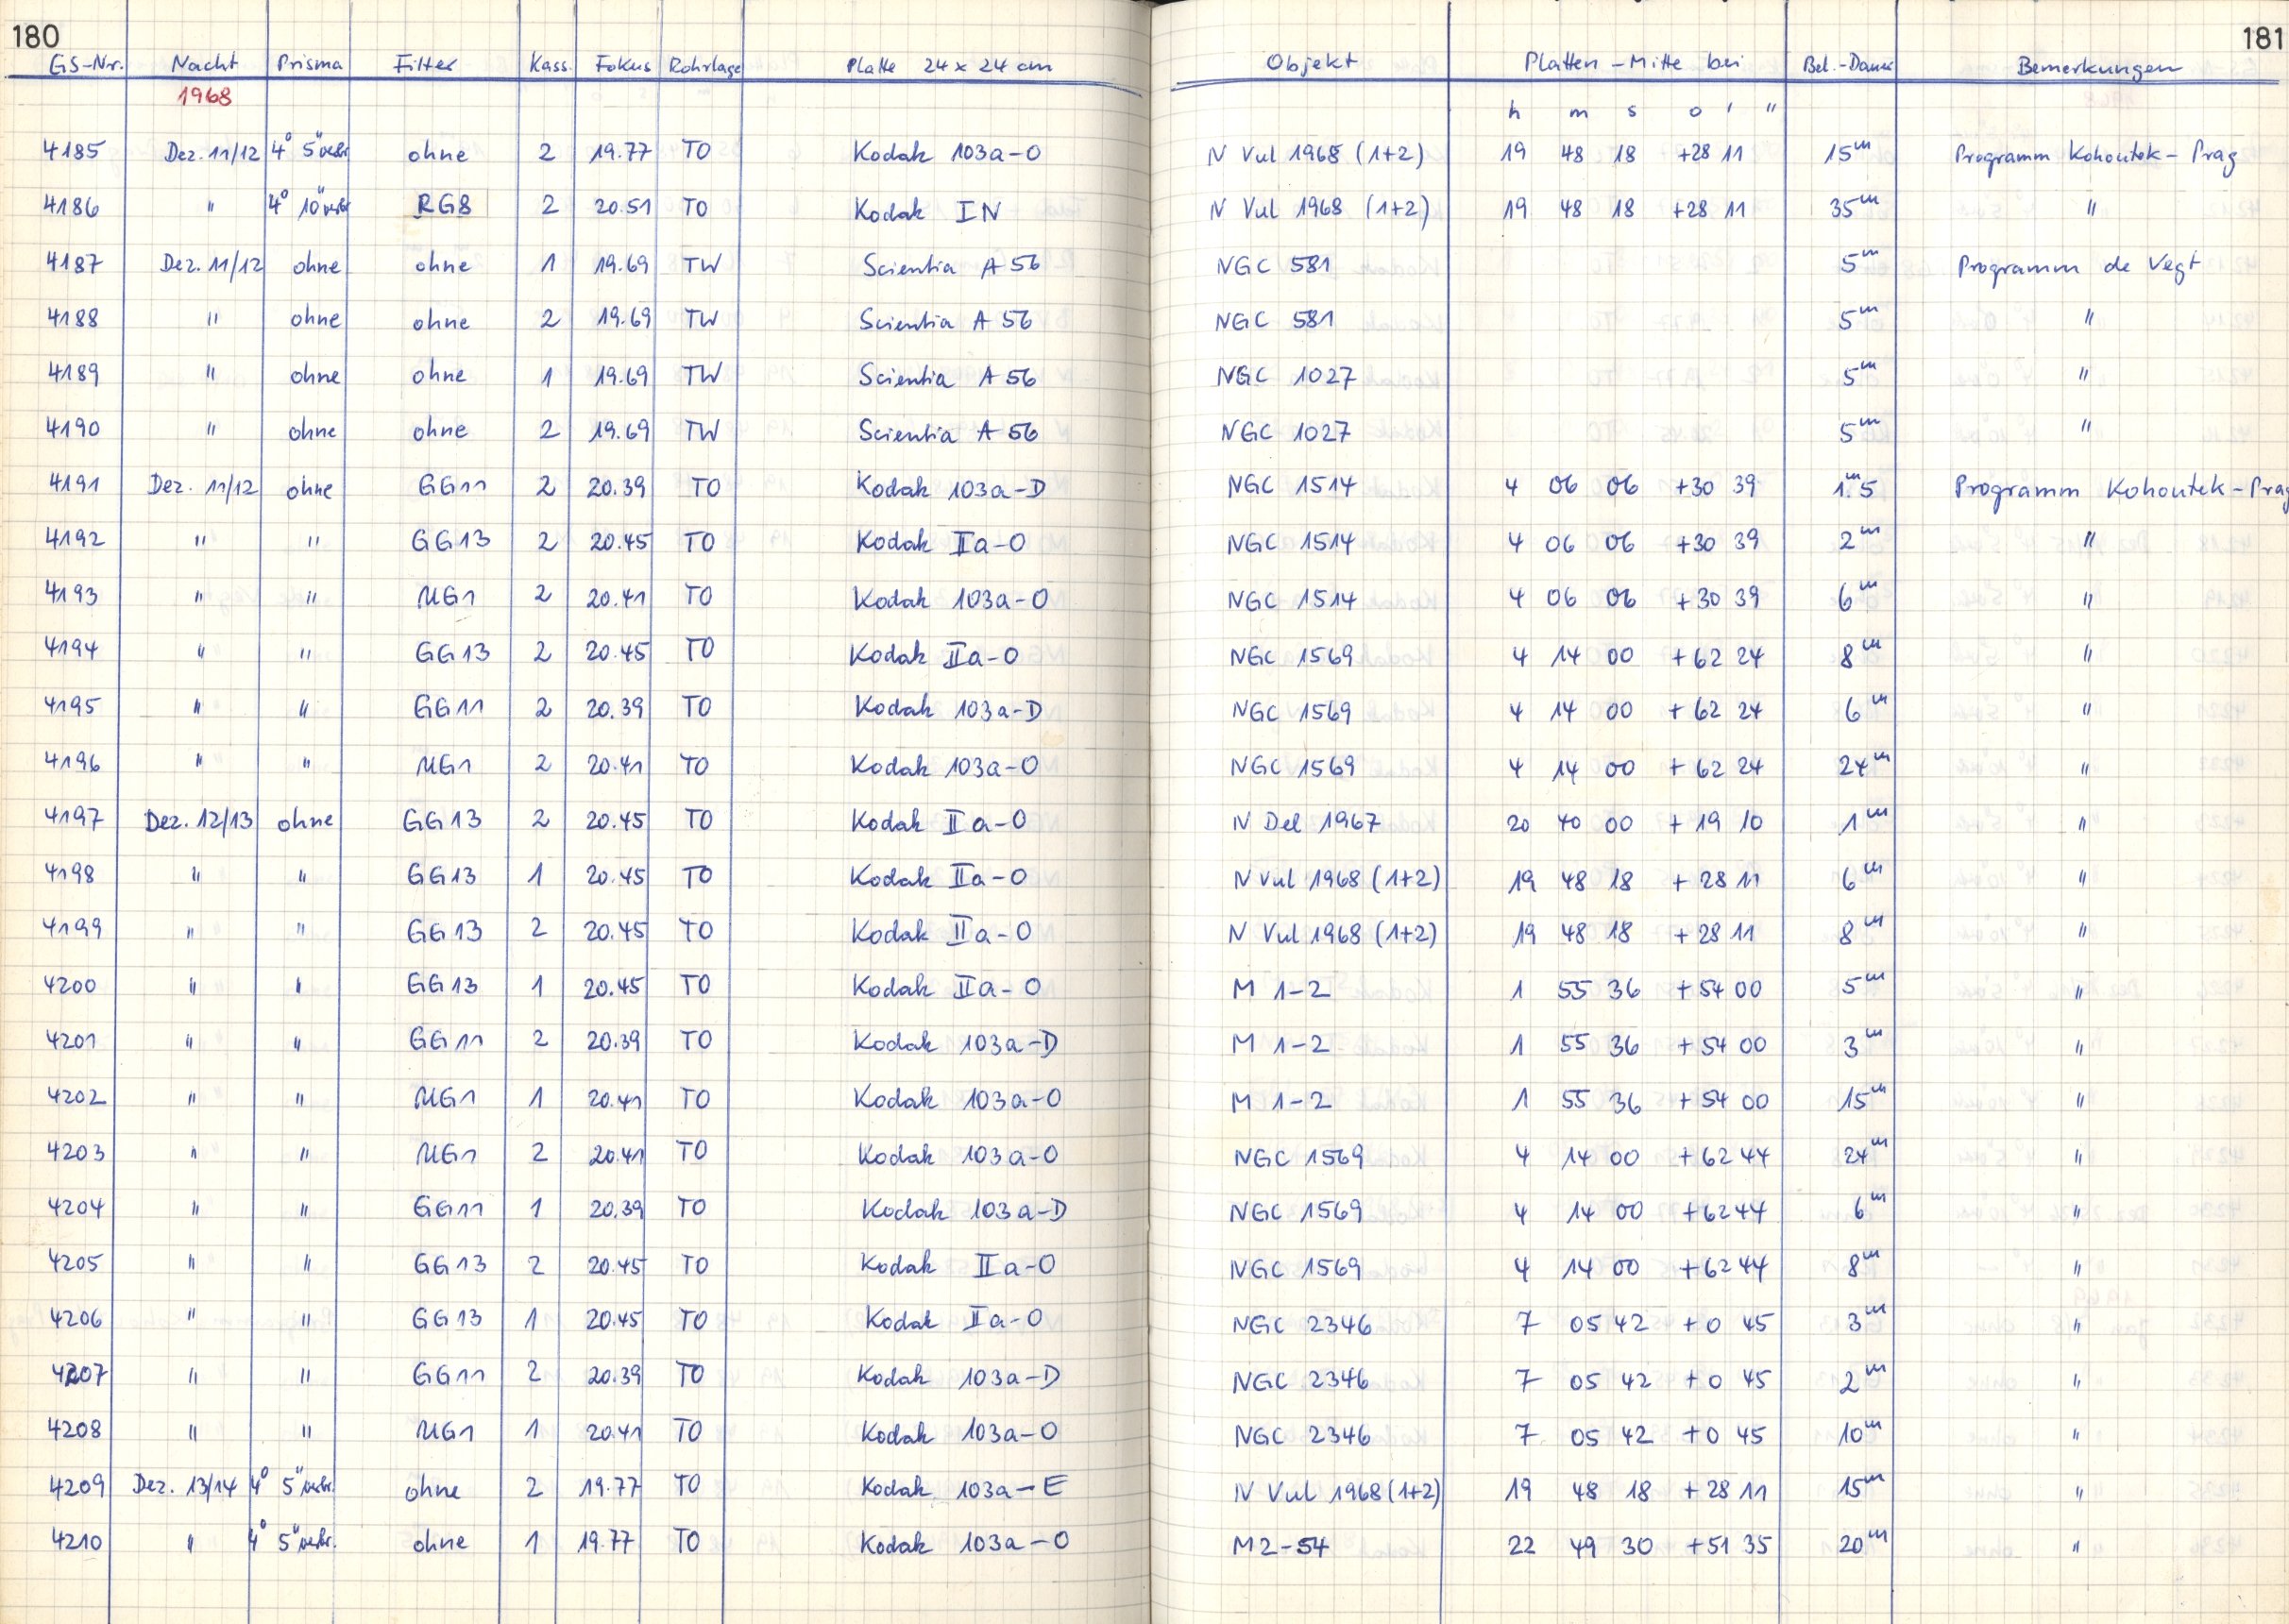 180 181
GS-Nr. Nacht Prisma Filter Kass. Fokus Rohrlage Platte 24 x 24 cm Objekt Platten-Mitte bei Bel.-Dauer Bemerkungen
1968 h m s o ' "
4185 Dez. 11/12 4° 5" verbr. ohne 2 19.77 TO Kodak 103a-O N Vul 1968 (1+2) 19 48 18 +28 11 15m Programm Kohoutek-Prag
4186 " 4° 10" verbr RG8 2 20.51 TO Kodak IN N Vul 1968 (1+2) 19 48 18 +28 11 35m "
4187 Dez. 11/12 ohne ohne 1 19.69 TW Scientia A 56 NGC 581 5m Programm de Vegt
4188 " ohne ohne 2 19.69 TW Scientia A 56 NGC 581 5m "
4189 " ohne ohne 1 19.69 TW Scientia A 56 NGC 1027 5m "
4190 " ohne ohne 2 19.69 TW Scientia A 56 NGC 1027 5m "
4191 Dez. 11/12 ohne GG11 2 20.39 TO Kodak 103a-D NGC 1514 4 06 06 +30 39 1m.5 Programm Kohoutek-Prag
4192 " " GG13 2 20.45 TO Kodak IIa-O NGC 1514 4 06 06 +30 39 2m "
4193 " " UG1 2 20.41 TO Kodak 103a-O NGC 1514 4 06 06 +30 39 6m "
4194 " " GG13 2 20.45 TO Kodak IIa-O NGC 1569 4 14 00 +62 24 8m "
4195 " " GG11 2 20.39 TO Kodak 103a-D NGC 1569 4 14 00 +62 24 6m "
4196 " " UG1 2 20.41 TO Kodak 103a-O NGC 1569 4 14 00 +62 24 24m "
4197 Dez. 12/13 ohne GG13 2 20.45 TO Kodak IIa-O N Del 1967 20 40 00 +19 10 1m "
4198 " " GG13 1 20.45 TO Kodak IIa-O N Vul 1968 (1+2) 19 48 18 +28 11 6m "
4199 " " GG13 2 20.45 TO Kodak IIa-O N Vul 1968 (1+2) 19 48 18 +28 11 8m "
4200 " " GG13 1 20.45 TO Kodak IIa-O M 1-2 1 55 36 +54 00 5m "
4201 " " GG11 2 20.39 TO Kodak 103a-D M 1-2 1 55 36 +54 00 3m "
4202 " " UG1 1 20.41 TO Kodak 103a-O M 1-2 1 55 36 +54 00 15m "
4203 " " UG1 2 20.41 TO Kodak 103a-O NGC 1569 4 14 00 +62 44 24m "
4204 " " GG11 1 20.39 TO Kodak 103a-D NGC 1569 4 14 00 +62 44 6m "
4205 " " GG13 2 20.45 TO Kodak IIa-O NGC 1569 4 14 00 +62 44 8m "
4206 " " GG13 1 20.45 TO Kodak IIa-O NGC 2346 7 05 42 +0 45 3m "
4207 " " GG11 2 20.39 TO Kodak 103a-D NGC 2346 7 05 42 +0 45 2m "
4208 " " UG1 1 20.41 TO Kodak 103a-O NGC 2346 7 05 42 +0 45 10m "
4209 Dez. 13/14 4° 5" verbr. ohne 2 19.77 TO Kodak 103a-E N Vul 1968 (1+2) 19 48 18 +28 11 15m "
4210 " 4° 5" verbr. ohne 1 19.77 TO Kodak 103a-O M2-54 22 49 30 +51 35 20m "